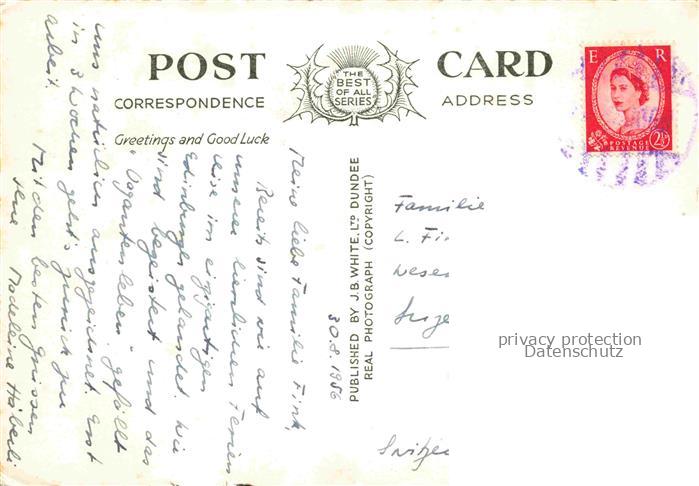 POST CARD
CORRESPONDENCE
ADDRESS
THE
BEST
OF ALL
SERIES
Greetings and Good Luck
E R
POSTAGE
REVENUE
2½
PUBLISHED BY J.B. WHITE. LTD DUNDEE
REAL PHOTOGRAPH (COPYRIGHT)
30.8.1956
Meine liebe Familie Fink,
Bereits sind wir auf
unserer herrlichen Ferien
reise im eigenartigen
Edinburgh gelandet. Wir
sind begeistert und das
"Vagantenleben" gefällt
uns natürlich ausgezeichnet. Erst
in 3 Wochen geht's zurück zur
Arbeit.
Mit den besten Grüssen
Ihre Madeleine Häberli
Familie
L. Fi
Switze
privacy protection
Datenschutz